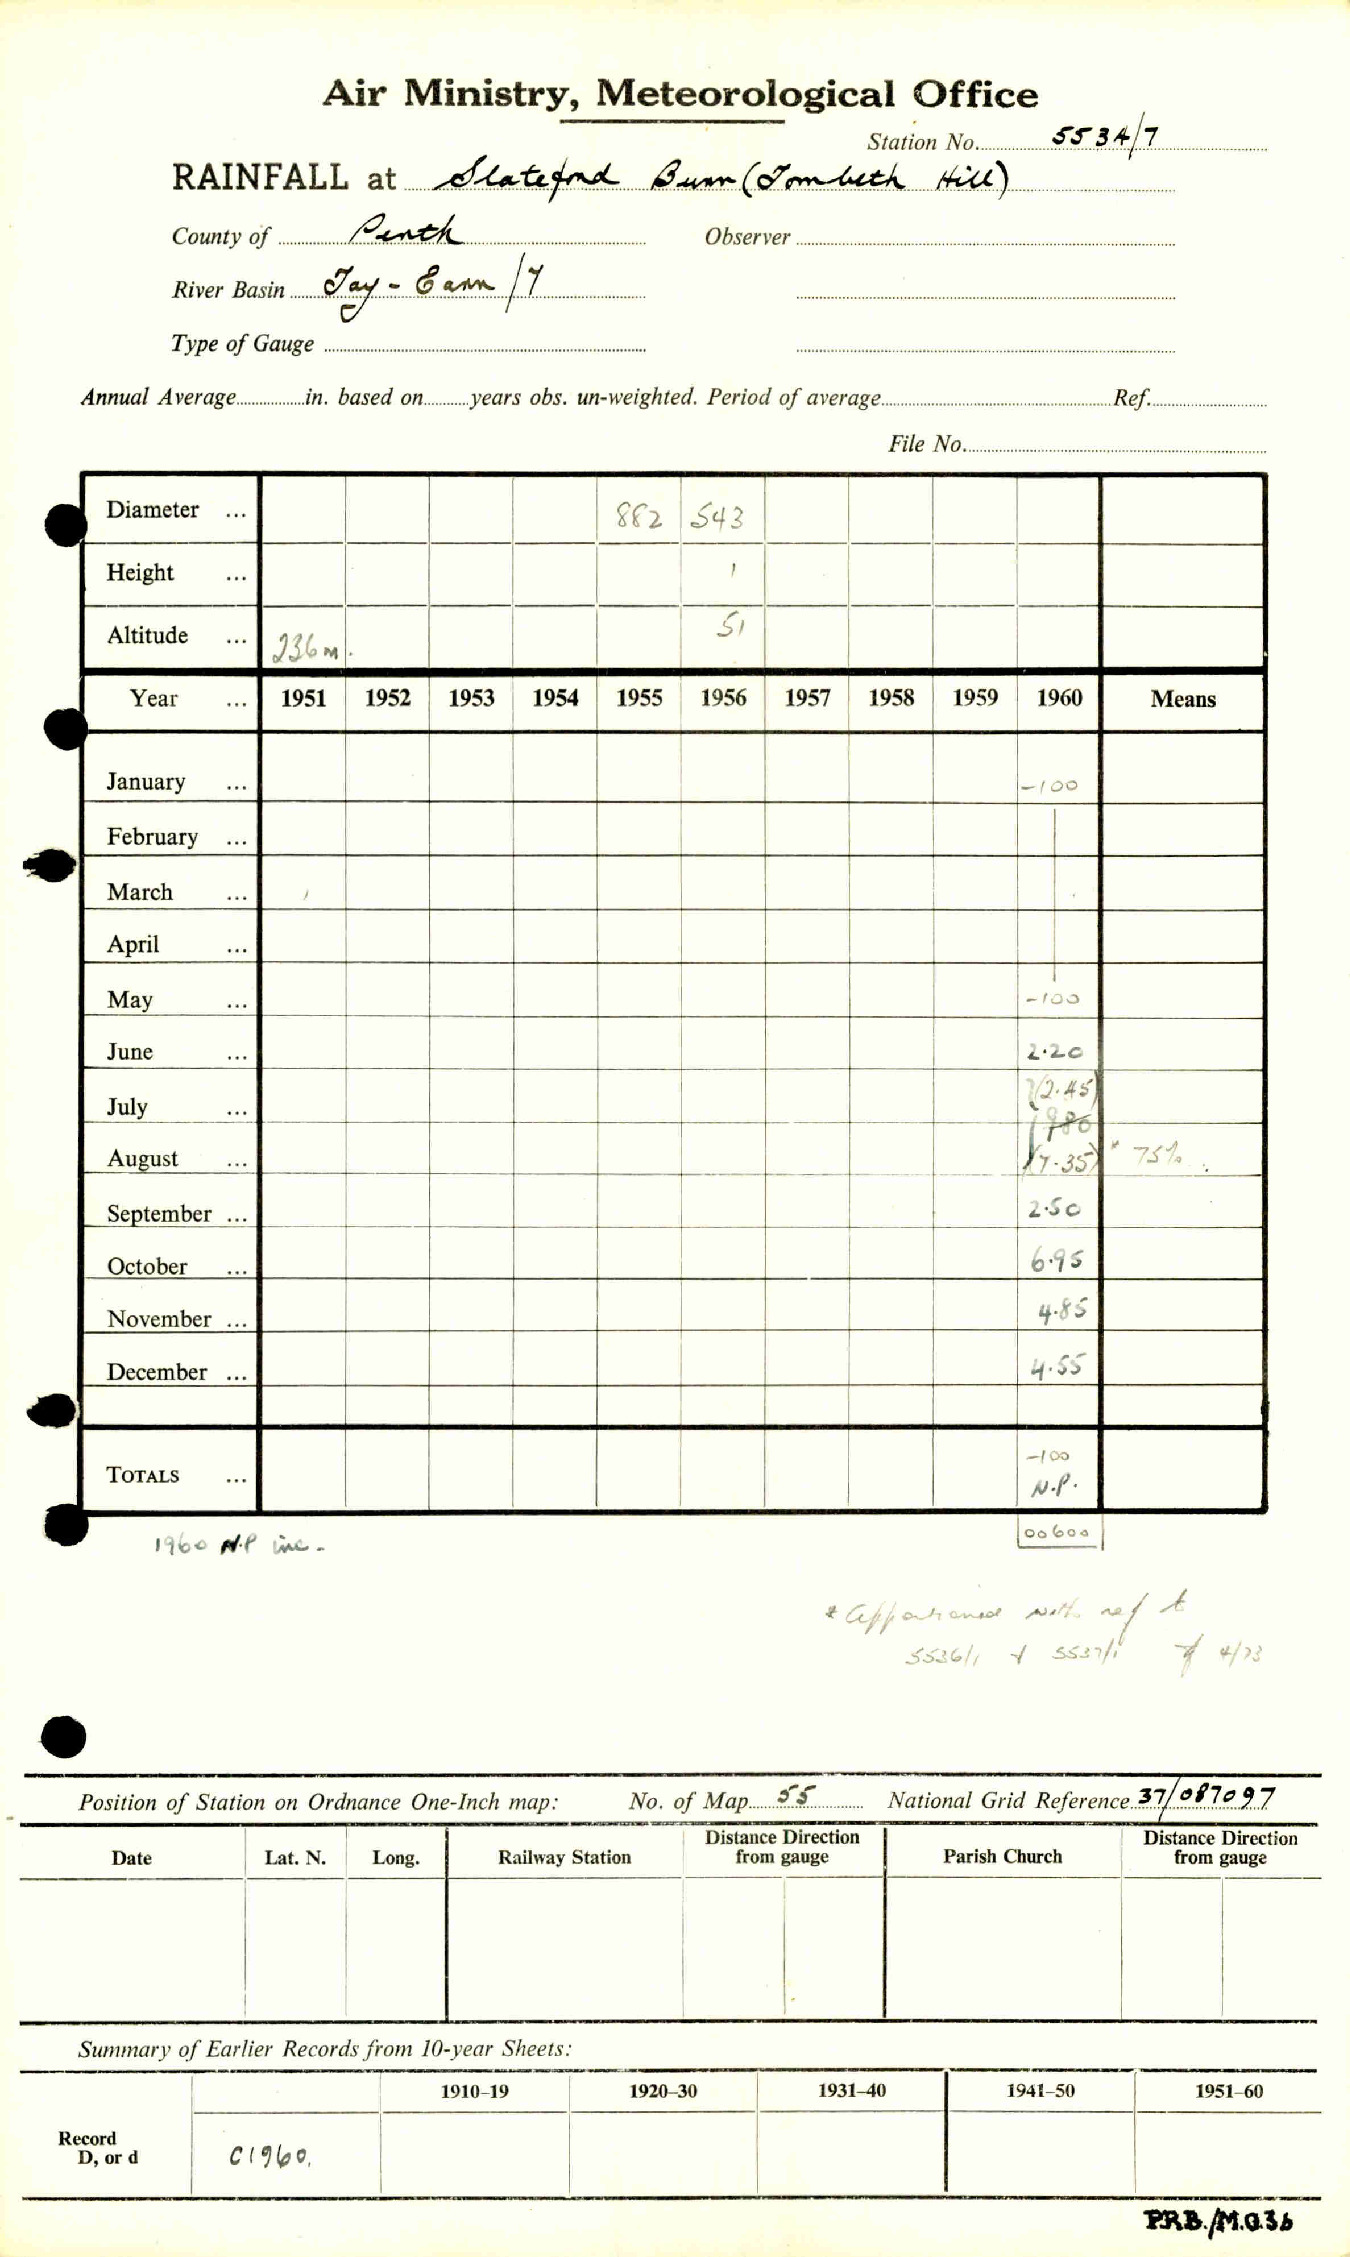 Air Ministry, Meteorological Office
Station No. 5534/7
RAINFALL at Slateford Burn (Tombeth Hill)
County of Perth Observer
River Basin Tay - Earn /7
Type of Gauge
Annual Average in. based on years obs. un-weighted. Period of average Ref.
File No.
Diameter ... 882 543
Height ... 1
Altitude ... 236 m. 51
Year ... 1951 1952 1953 1954 1955 1956 1957 1958 1959 1960 Means
January ... -100
February ...
March ...
April ...
May ... -100
June ... 2.20
July ... (2.45)
980
August ... (7.35) * 75%
September ... 2.50
October ... 6.95
November ... 4.85
December ... 4.55
TOTALS ... -100
N.P.
00600
1960 N.P inc.
* Apportioned with ref to
5536/1 & 5537/1 4/73
Position of Station on Ordnance One-Inch map: No. of Map 55 National Grid Reference 37/087097
Date Lat. N. Long. Railway Station Distance Direction from gauge Parish Church Distance Direction from gauge
Summary of Earlier Records from 10-year Sheets:
1910–19 1920–30 1931–40 1941–50 1951–60
Record
D, or d C1960.
P.R.B./M.O.3b